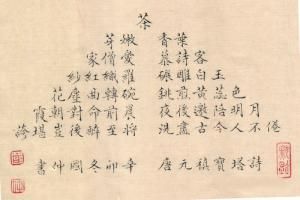 茶
香葉
嫩芽
慕詩客
愛僧家
碾雕白玉
羅織紅紗
銚煎黃蕊色
碗轉曲塵花
夜後邀陪明月
晨前命對朝霞
洗盡古今人不倦
將至醉後豈堪誇
唐元稹寶塔詩
辛卯冬國仲書